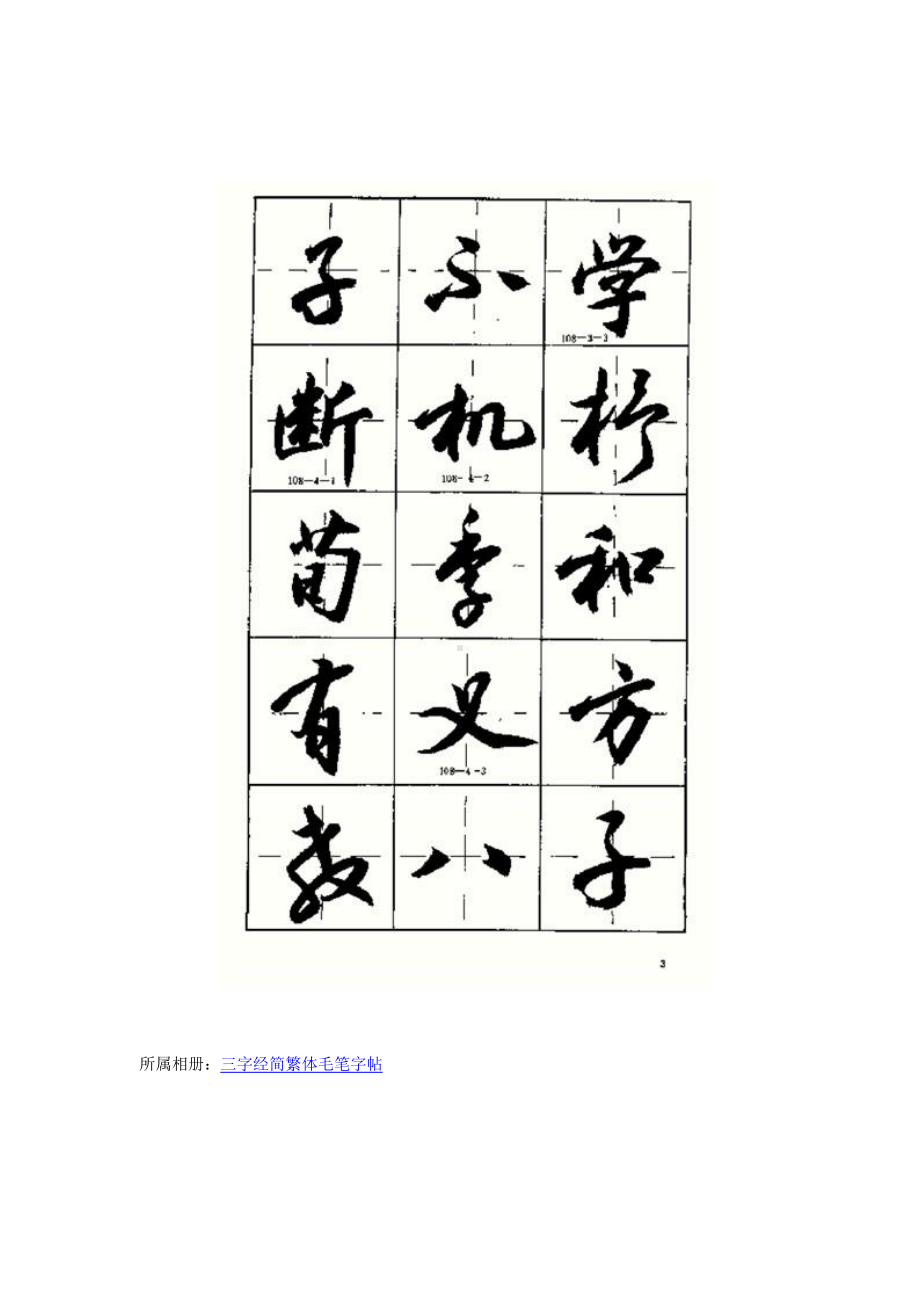 子不学
108—3—3
断机杼
108—4—1 108-4—2
荀季和
有义方
108—4-3
教八子
3
所属相册：三字经简繁体毛笔字帖